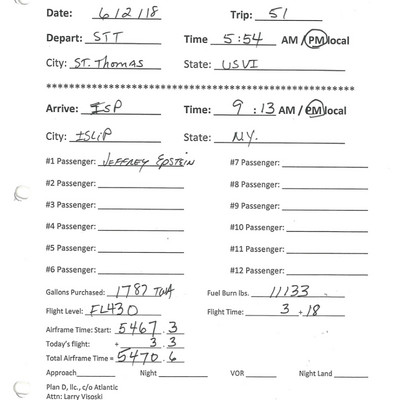 Date: 6/2/18 Trip: 51
Depart: STT Time 5:54 AM / PM local
City: ST. THOMAS State: USVI
************************************************
Arrive: ISP Time: 9:13 AM / PM local
City: ISLIP State: NY.
#1 Passenger: JEFFREY EPSTEIN #7 Passenger:
#2 Passenger: #8 Passenger:
#3 Passenger: #9 Passenger:
#4 Passenger: #10 Passenger:
#5 Passenger: #11 Passenger:
#6 Passenger: #12 Passenger:
Gallons Purchased: 1787 Fuel Burn lbs. 11133
Flight Level: FL430 Flight Time: 3 + 18
Airframe Time: Start: 5467.3
Today's flight: + 3.3
Total Airframe Time = 5470.6
Approach Night VOR Night Land
Plan D, llc., c/o Atlantic
Attn: Larry Visoski